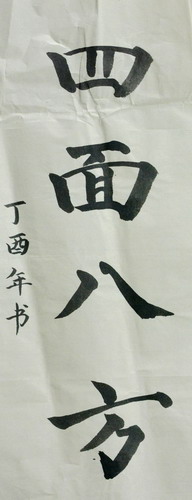 四面八方
丁酉年书